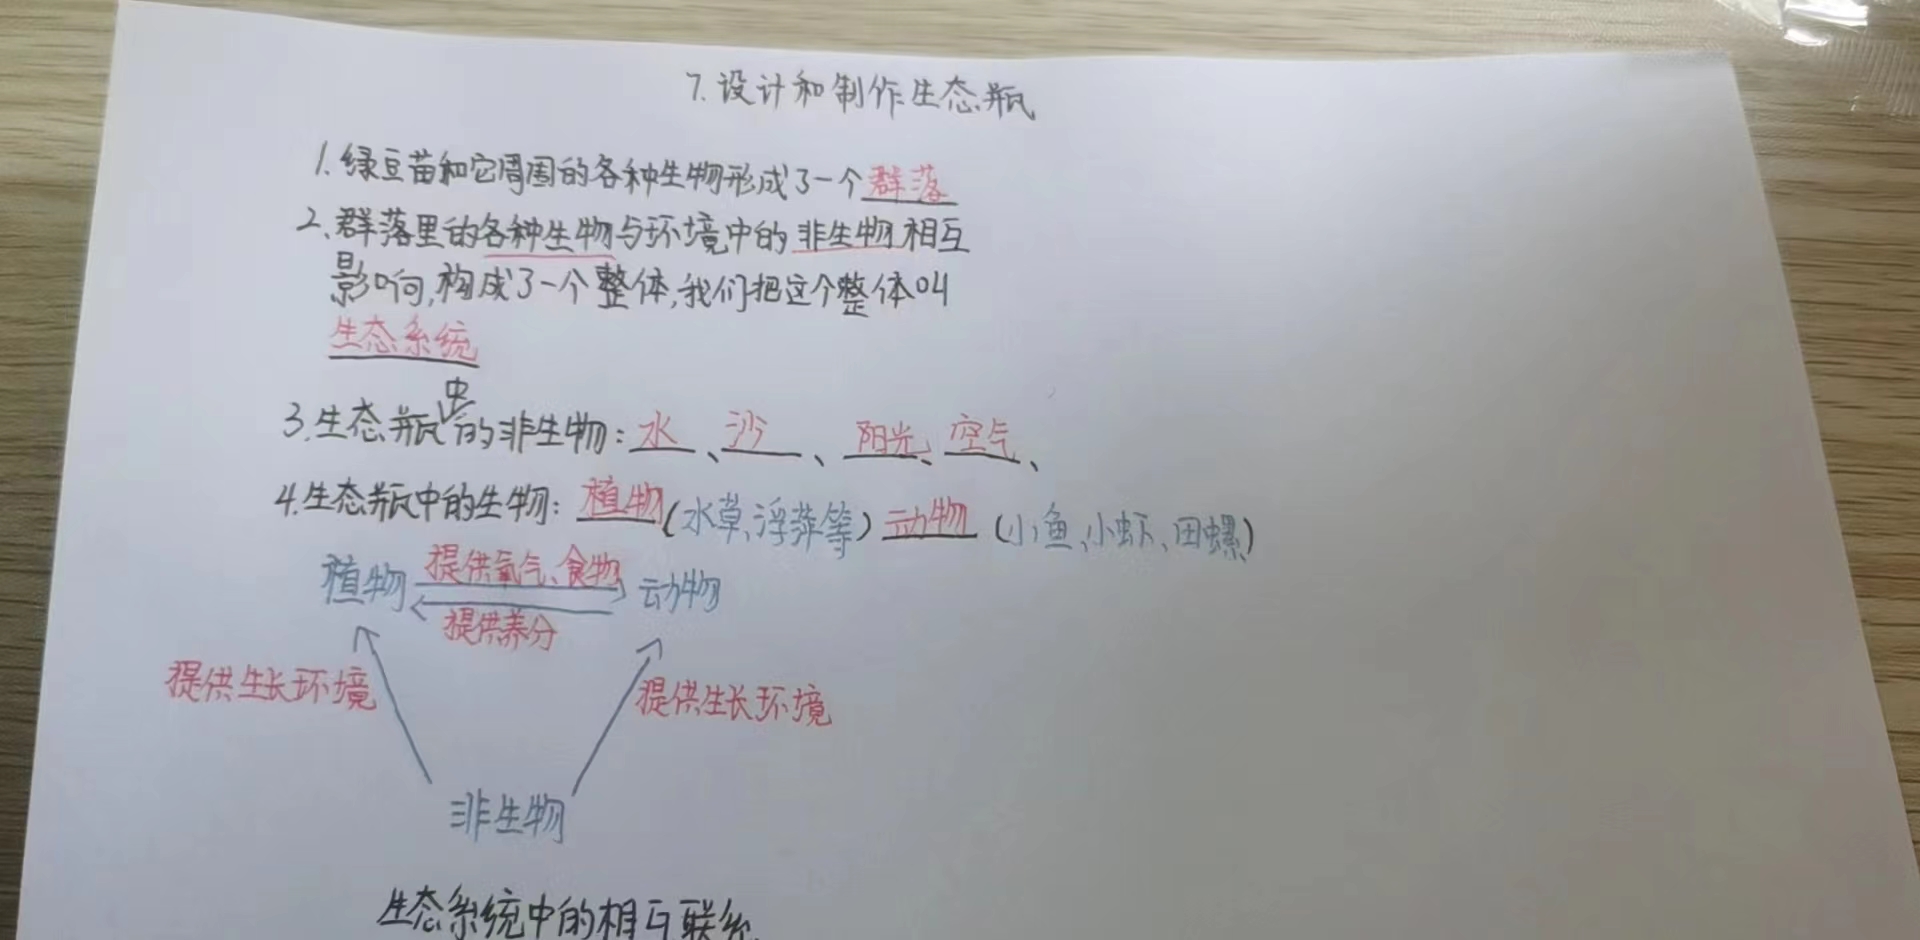 7.设计和制作生态瓶
1.绿豆苗和它周围的各种生物形成了一个群落
2.群落里的各种生物与环境中的非生物相互
影响,构成了一个整体,我们把这个整体叫
生态系统
3.生态瓶中的非生物:水、沙、阳光、空气、
4.生态瓶中的生物:植物(水草、浮萍等)动物(小鱼、小虾、田螺)
植物 提供氧气、食物 动物
提供养分
提供生长环境 提供生长环境
非生物
生态系统中的相互联系